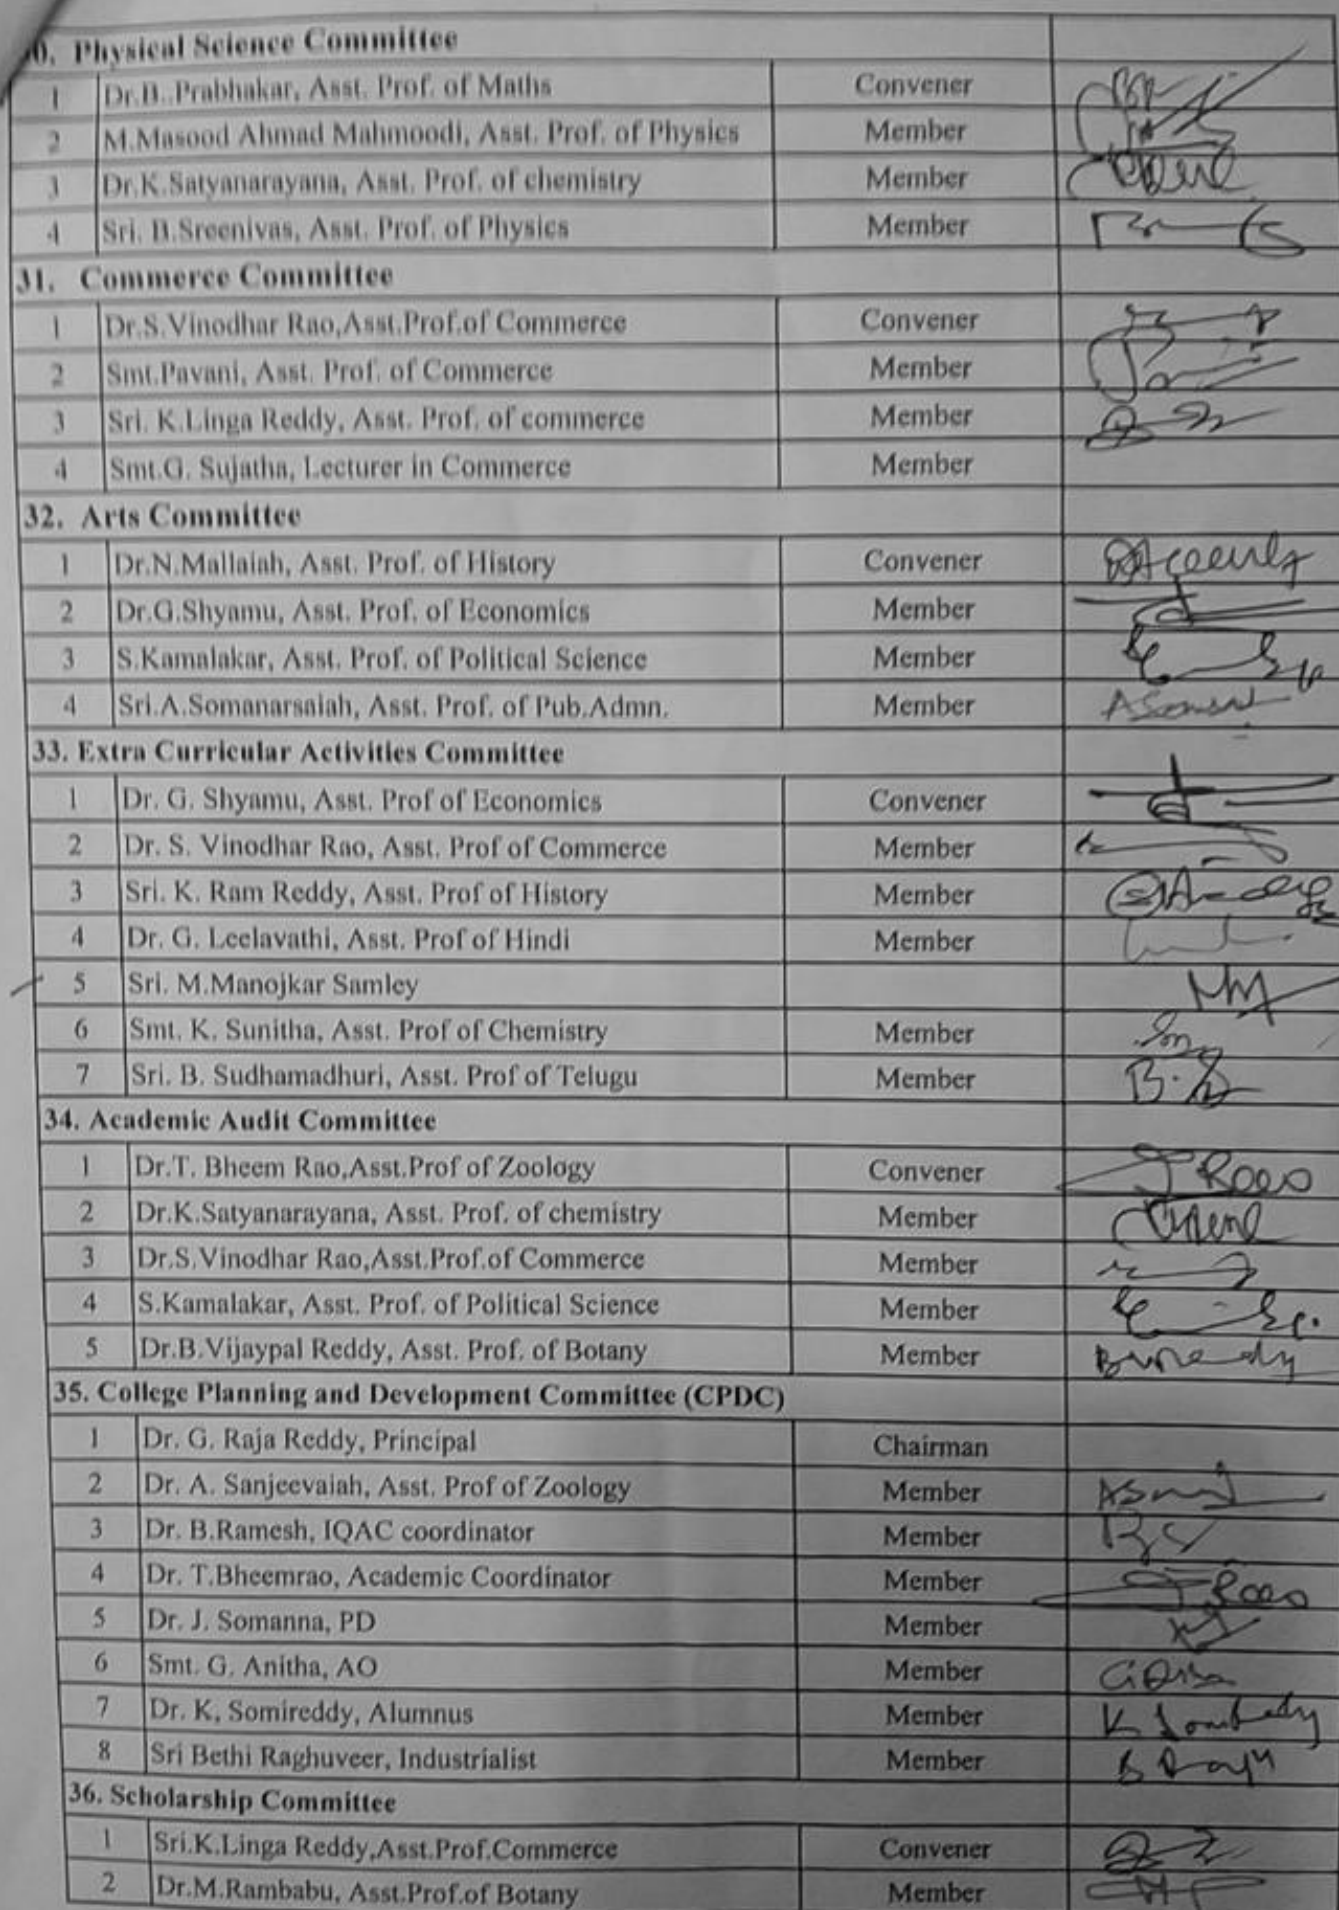 0. Physical Science Committee
1 Dr.B..Prabhakar, Asst. Prof. of Maths Convener
2 M.Masood Ahmad Mahmoodi, Asst. Prof. of Physics Member
3 Dr.K.Satyanarayana, Asst. Prof. of chemistry Member
4 Sri. B.Sreenivas, Asst. Prof. of Physics Member
31. Commerce Committee
1 Dr.S.Vinodhar Rao,Asst.Prof.of Commerce Convener
2 Smt.Pavani, Asst. Prof. of Commerce Member
3 Sri. K.Linga Reddy, Asst. Prof. of commerce Member
4 Smt.G. Sujatha, Lecturer in Commerce Member
32. Arts Committee
1 Dr.N.Mallaiah, Asst. Prof. of History Convener
2 Dr.G.Shyamu, Asst. Prof. of Economics Member
3 S.Kamalakar, Asst. Prof. of Political Science Member
4 Sri.A.Somanarsaiah, Asst. Prof. of Pub.Admn. Member
33. Extra Curricular Activities Committee
1 Dr. G. Shyamu, Asst. Prof of Economics Convener
2 Dr. S. Vinodhar Rao, Asst. Prof of Commerce Member
3 Sri. K. Ram Reddy, Asst. Prof of History Member
4 Dr. G. Leelavathi, Asst. Prof of Hindi Member
5 Sri. M.Manojkar Samley
6 Smt. K. Sunitha, Asst. Prof of Chemistry Member
7 Sri. B. Sudhamadhuri, Asst. Prof of Telugu Member
34. Academic Audit Committee
1 Dr.T. Bheem Rao,Asst.Prof of Zoology Convener
2 Dr.K.Satyanarayana, Asst. Prof. of chemistry Member
3 Dr.S.Vinodhar Rao,Asst.Prof.of Commerce Member
4 S.Kamalakar, Asst. Prof. of Political Science Member
5 Dr.B.Vijaypal Reddy, Asst. Prof. of Botany Member
35. College Planning and Development Committee (CPDC)
1 Dr. G. Raja Reddy, Principal Chairman
2 Dr. A. Sanjeevaiah, Asst. Prof of Zoology Member
3 Dr. B.Ramesh, IQAC coordinator Member
4 Dr. T.Bheemrao, Academic Coordinator Member
5 Dr. J. Somanna, PD Member
6 Smt. G. Anitha, AO Member
7 Dr. K, Somireddy, Alumnus Member
8 Sri Bethi Raghuveer, Industrialist Member
36. Scholarship Committee
1 Sri.K.Linga Reddy,Asst.Prof.Commerce Convener
2 Dr.M.Rambabu, Asst.Prof.of Botany Member